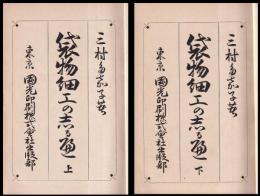 三村多嘉子著
袋物細工の志る遍
上
東京 國光印刷株式會社出版部
三村多嘉子著
袋物細工の志る遍
下
東京 國光印刷株式會社出版部